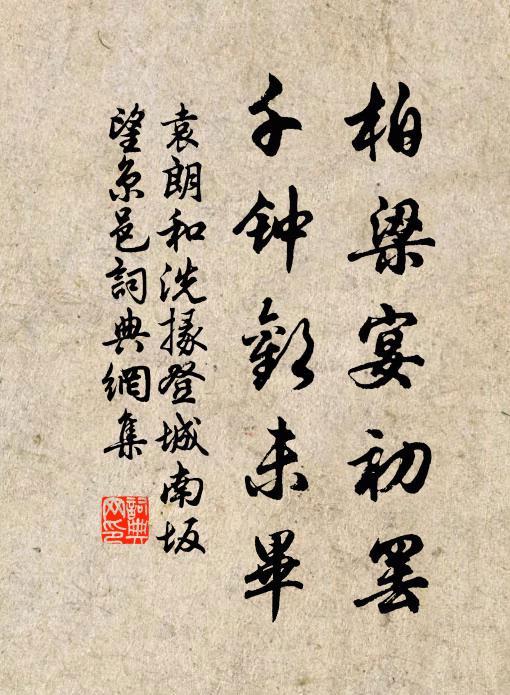 柏梁宴初罢
千钟欢未毕
袁朗和洗掾登城南坂
望京邑詞典網集
詞典
网印